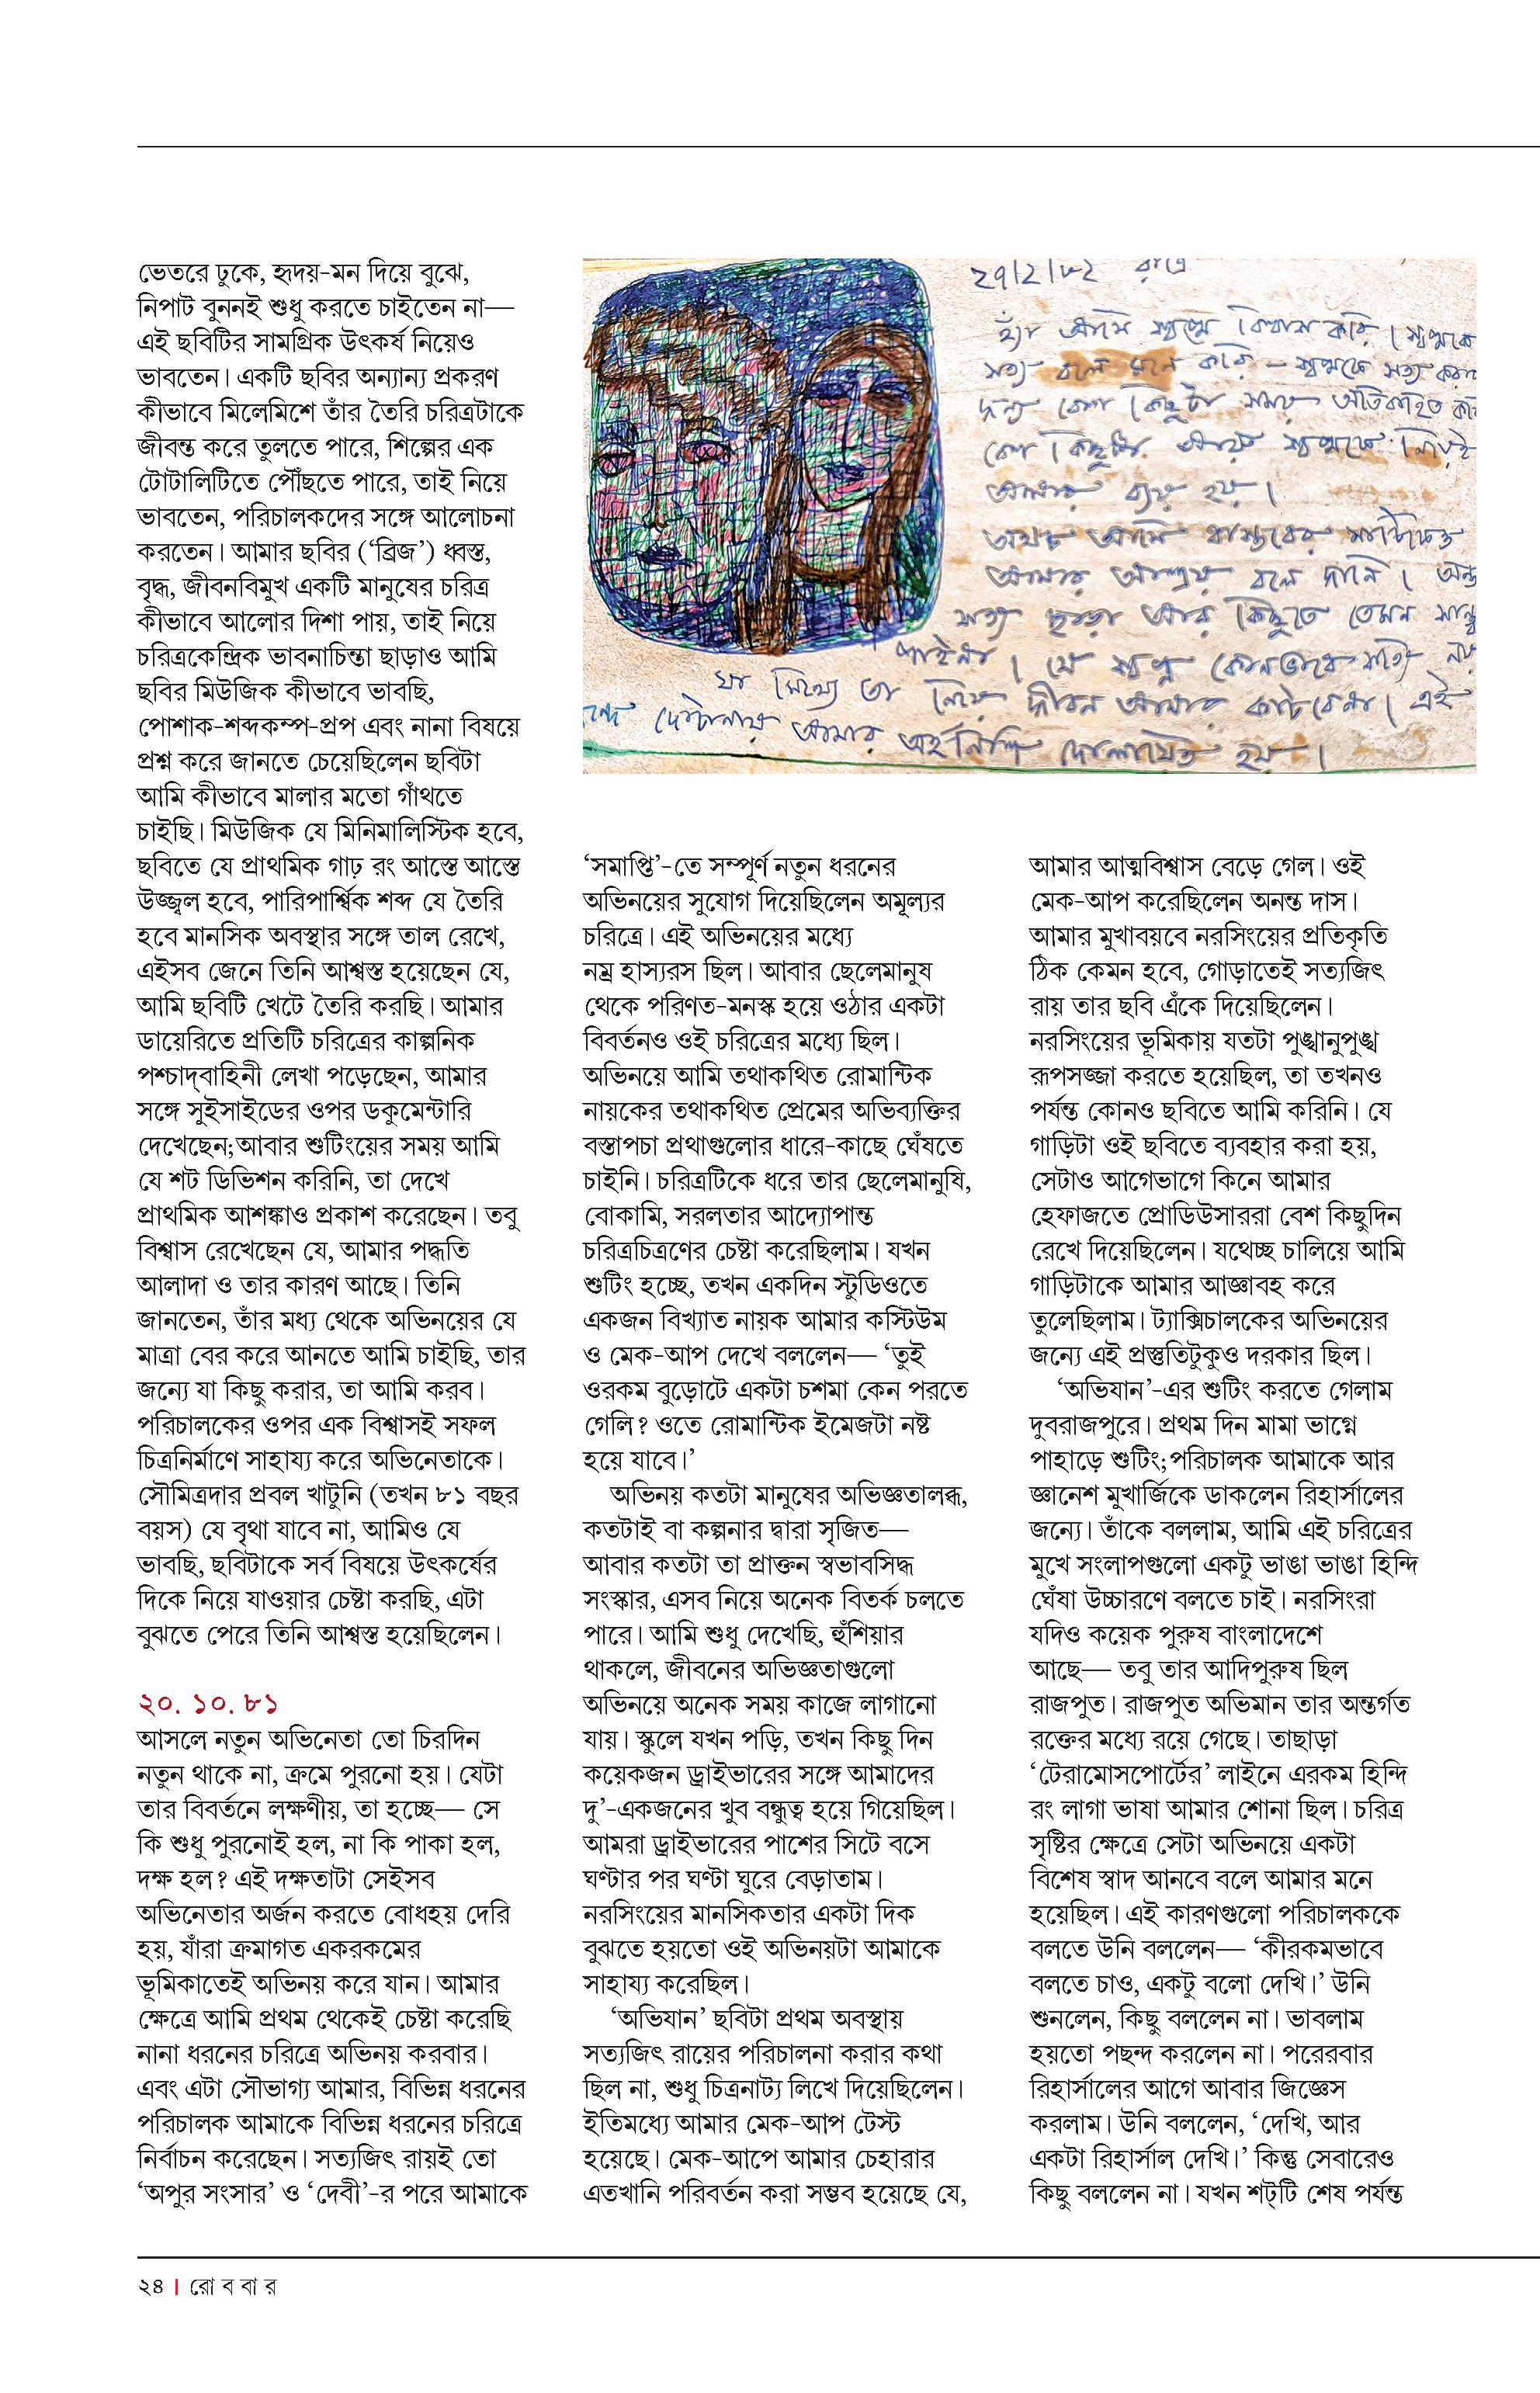 ভেতরে ঢুকে, হৃদয়-মন দিয়ে বুঝে,
নিপাট বুননই শুধু করতে চাইতেন না—
এই ছবিটির সামগ্রিক উৎকর্ষ নিয়েও
ভাবতেন। একটি ছবির অন্যান্য প্রকরণ
কীভাবে মিলেমিশে তাঁর তৈরি চরিত্রটাকে
জীবন্ত করে তুলতে পারে, শিল্পের এক
টোটালিটিতে পৌঁছতে পারে, তাই নিয়ে
ভাবতেন, পরিচালকদের সঙ্গে আলোচনা
করতেন। আমার ছবির (‘ব্রিজ’) ধ্বস্ত,
বৃদ্ধ, জীবনবিমুখ একটি মানুষের চরিত্র
কীভাবে আলোর দিশা পায়, তাই নিয়ে
চরিত্রকেন্দ্রিক ভাবনাচিন্তা ছাড়াও আমি
ছবির মিউজিক কীভাবে ভাবছি,
পোশাক-শব্দকম্প-প্রপ এবং নানা বিষয়ে
প্রশ্ন করে জানতে চেয়েছিলেন ছবিটা
আমি কীভাবে মালার মতো গাঁথতে
চাইছি। মিউজিক যে মিনিমালিস্টিক হবে,
ছবিতে যে প্রাথমিক গাঢ় রং আস্তে আস্তে
উজ্জ্বল হবে, পারিপার্শ্বিক শব্দ যে তৈরি
হবে মানসিক অবস্থার সঙ্গে তাল রেখে,
এইসব জেনে তিনি আশ্বস্ত হয়েছেন যে,
আমি ছবিটি খেটে তৈরি করছি। আমার
ডায়েরিতে প্রতিটি চরিত্রের কাল্পনিক
পশ্চাদ্‌বাহিনী লেখা পড়েছেন, আমার
সঙ্গে সুইসাইডের ওপর ডকুমেন্টারি
দেখেছেন;আবার শুটিংয়ের সময় আমি
যে শট ডিভিশন করিনি, তা দেখে
প্রাথমিক আশঙ্কাও প্রকাশ করেছেন। তবু
বিশ্বাস রেখেছেন যে, আমার পদ্ধতি
আলাদা ও তার কারণ আছে। তিনি
জানতেন, তাঁর মধ্য থেকে অভিনয়ের যে
মাত্রা বের করে আনতে আমি চাইছি, তার
জন্যে যা কিছু করার, তা আমি করব।
পরিচালকের ওপর এক বিশ্বাসই সফল
চিত্রনির্মাণে সাহায্য করে অভিনেতাকে।
সৌমিত্রদার প্রবল খাটুনি (তখন ৮১ বছর
বয়স) যে বৃথা যাবে না, আমিও যে
ভাবছি, ছবিটাকে সর্ব বিষয়ে উৎকর্ষের
দিকে নিয়ে যাওয়ার চেষ্টা করছি, এটা
বুঝতে পেরে তিনি আশ্বস্ত হয়েছিলেন।
২০. ১০. ৮১
আসলে নতুন অভিনেতা তো চিরদিন
নতুন থাকে না, ক্রমে পুরনো হয়। যেটা
তার বিবর্তনে লক্ষণীয়, তা হচ্ছে— সে
কি শুধু পুরনোই হল, না কি পাকা হল,
দক্ষ হল? এই দক্ষতাটা সেইসব
অভিনেতার অর্জন করতে বোধহয় দেরি
হয়, যাঁরা ক্রমাগত একরকমের
ভূমিকাতেই অভিনয় করে যান। আমার
ক্ষেত্রে আমি প্রথম থেকেই চেষ্টা করেছি
নানা ধরনের চরিত্রে অভিনয় করবার।
এবং এটা সৌভাগ্য আমার, বিভিন্ন ধরনের
পরিচালক আমাকে বিভিন্ন ধরনের চরিত্রে
নির্বাচন করেছেন। সত্যজিৎ রায়ই তো
‘অপুর সংসার’ ও ‘দেবী’-র পরে আমাকে
২৭/২/৮২ রাত্রে
হ্যাঁ আমি স্বপ্নে বিশ্বাস করি। স্বপ্নকে
সত্য বলে মনে করি – স্বপ্নকে সত্য করার
জন্য বেশ কিছুটা সময় অতিবাহিত করি
বেশ কিছুটা আয়ু স্বপ্নকে নিয়েই
আমার ব্যয় হয়।
অথচ আমি বাস্তবের মাটিকেও
আমার আশ্রয় বলে জানি।
সত্য ছাড়া আর কিছুতে তেমন
পাইনা। যে স্বপ্ন কোনভাবে সত্যি নয়
যা মিথ্যে তা নিয়ে জীবন আমার কাটবেনা। এই
দোটানায় আমার অহর্নিশি দোলায়িত হয়।
‘সমাপ্তি’-তে সম্পূর্ণ নতুন ধরনের
অভিনয়ের সুযোগ দিয়েছিলেন অমূল্যর
চরিত্রে। এই অভিনয়ের মধ্যে
নম্র হাস্যরস ছিল। আবার ছেলেমানুষ
থেকে পরিণত-মনস্ক হয়ে ওঠার একটা
বিবর্তনও ওই চরিত্রের মধ্যে ছিল।
অভিনয়ে আমি তথাকথিত রোমান্টিক
নায়কের তথাকথিত প্রেমের অভিব্যক্তির
বস্তাপচা প্রথাগুলোর ধারে-কাছে ঘেঁষতে
চাইনি। চরিত্রটিকে ধরে তার ছেলেমানুষি,
বোকামি, সরলতার আদ্যোপান্ত
চরিত্রচিত্রণের চেষ্টা করেছিলাম। যখন
শুটিং হচ্ছে, তখন একদিন স্টুডিওতে
একজন বিখ্যাত নায়ক আমার কস্টিউম
ও মেক-আপ দেখে বললেন— ‘তুই
ওরকম বুড়োটে একটা চশমা কেন পরতে
গেলি? ওতে রোমান্টিক ইমেজটা নষ্ট
হয়ে যাবে।’
অভিনয় কতটা মানুষের অভিজ্ঞতালব্ধ,
কতটাই বা কল্পনার দ্বারা সৃজিত—
আবার কতটা তা প্রাক্তন স্বভাবসিদ্ধ
সংস্কার, এসব নিয়ে অনেক বিতর্ক চলতে
পারে। আমি শুধু দেখেছি, হুঁশিয়ার
থাকলে, জীবনের অভিজ্ঞতাগুলো
অভিনয়ে অনেক সময় কাজে লাগানো
যায়। স্কুলে যখন পড়ি, তখন কিছু দিন
কয়েকজন ড্রাইভারের সঙ্গে আমাদের
দু’-একজনের খুব বন্ধুত্ব হয়ে গিয়েছিল।
আমরা ড্রাইভারের পাশের সিটে বসে
ঘণ্টার পর ঘণ্টা ঘুরে বেড়াতাম।
নরসিংয়ের মানসিকতার একটা দিক
বুঝতে হয়তো ওই অভিনয়টা আমাকে
সাহায্য করেছিল।
‘অভিযান’ ছবিটা প্রথম অবস্থায়
সত্যজিৎ রায়ের পরিচালনা করার কথা
ছিল না, শুধু চিত্রনাট্য লিখে দিয়েছিলেন।
ইতিমধ্যে আমার মেক-আপ টেস্ট
হয়েছে। মেক-আপে আমার চেহারার
এতখানি পরিবর্তন করা সম্ভব হয়েছে যে,
আমার আত্মবিশ্বাস বেড়ে গেল। ওই
মেক-আপ করেছিলেন অনন্ত দাস।
আমার মুখাবয়বে নরসিংয়ের প্রতিকৃতি
ঠিক কেমন হবে, গোড়াতেই সত্যজিৎ
রায় তার ছবি এঁকে দিয়েছিলেন।
নরসিংয়ের ভূমিকায় যতটা পুঙ্খানুপুঙ্খ
রূপসজ্জা করতে হয়েছিল, তা তখনও
পর্যন্ত কোনও ছবিতে আমি করিনি। যে
গাড়িটা ওই ছবিতে ব্যবহার করা হয়,
সেটাও আগেভাগে কিনে আমার
হেফাজতে প্রোডিউসাররা বেশ কিছুদিন
রেখে দিয়েছিলেন। যথেচ্ছ চালিয়ে আমি
গাড়িটাকে আমার আজ্ঞাবহ করে
তুলেছিলাম। ট্যাক্সিচালকের অভিনয়ের
জন্যে এই প্রস্তুতিটুকুও দরকার ছিল।
‘অভিযান’-এর শুটিং করতে গেলাম
দুবরাজপুরে। প্রথম দিন মামা ভাগ্নে
পাহাড়ে শুটিং;পরিচালক আমাকে আর
জ্ঞানেশ মুখার্জিকে ডাকলেন রিহার্সালের
জন্যে। তাঁকে বললাম, আমি এই চরিত্রের
মুখে সংলাপগুলো একটু ভাঙা ভাঙা হিন্দি
ঘেঁষা উচ্চারণে বলতে চাই। নরসিংরা
যদিও কয়েক পুরুষ বাংলাদেশে
আছে— তবু তার আদিপুরুষ ছিল
রাজপুত। রাজপুত অভিমান তার অন্তর্গত
রক্তের মধ্যে রয়ে গেছে। তাছাড়া
‘টেরামোসপোর্টের’ লাইনে এরকম হিন্দি
রং লাগা ভাষা আমার শোনা ছিল। চরিত্র
সৃষ্টির ক্ষেত্রে সেটা অভিনয়ে একটা
বিশেষ স্বাদ আনবে বলে আমার মনে
হয়েছিল। এই কারণগুলো পরিচালককে
বলতে উনি বললেন— ‘কীরকমভাবে
বলতে চাও, একটু বলো দেখি।’ উনি
শুনলেন, কিছু বললেন না। ভাবলাম
হয়তো পছন্দ করলেন না। পরেরবার
রিহার্সালের আগে আবার জিজ্ঞেস
করলাম। উনি বললেন, ‘দেখি, আর
একটা রিহার্সাল দেখি।’ কিন্তু সেবারেও
কিছু বললেন না। যখন শট্‌টি শেষ পর্যন্ত
২৪ | রো ব বা র